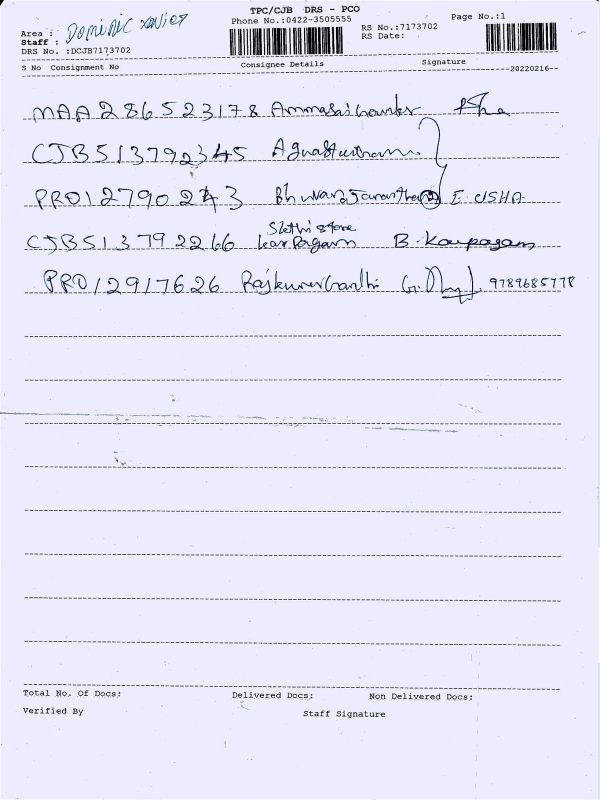 TPC/CJB DRS - PCO
Phone No.:0422-3505555
Page No.:1
Area :
Staff : Dominic Xavier
RS No.:7173702
RS Date:
DRS No. :DCJB7173702
S No Consignment No Consignee Details Signature
20220216
MAA286523178
CJB513792345
PRO12790243 E. USHA
CJB513792266 Karpagam B. Karpagam
PRO12917626 Rajkumar Gandhi 9789685778
Total No. Of Docs: Delivered Docs: Non Delivered Docs:
Verified By Staff Signature